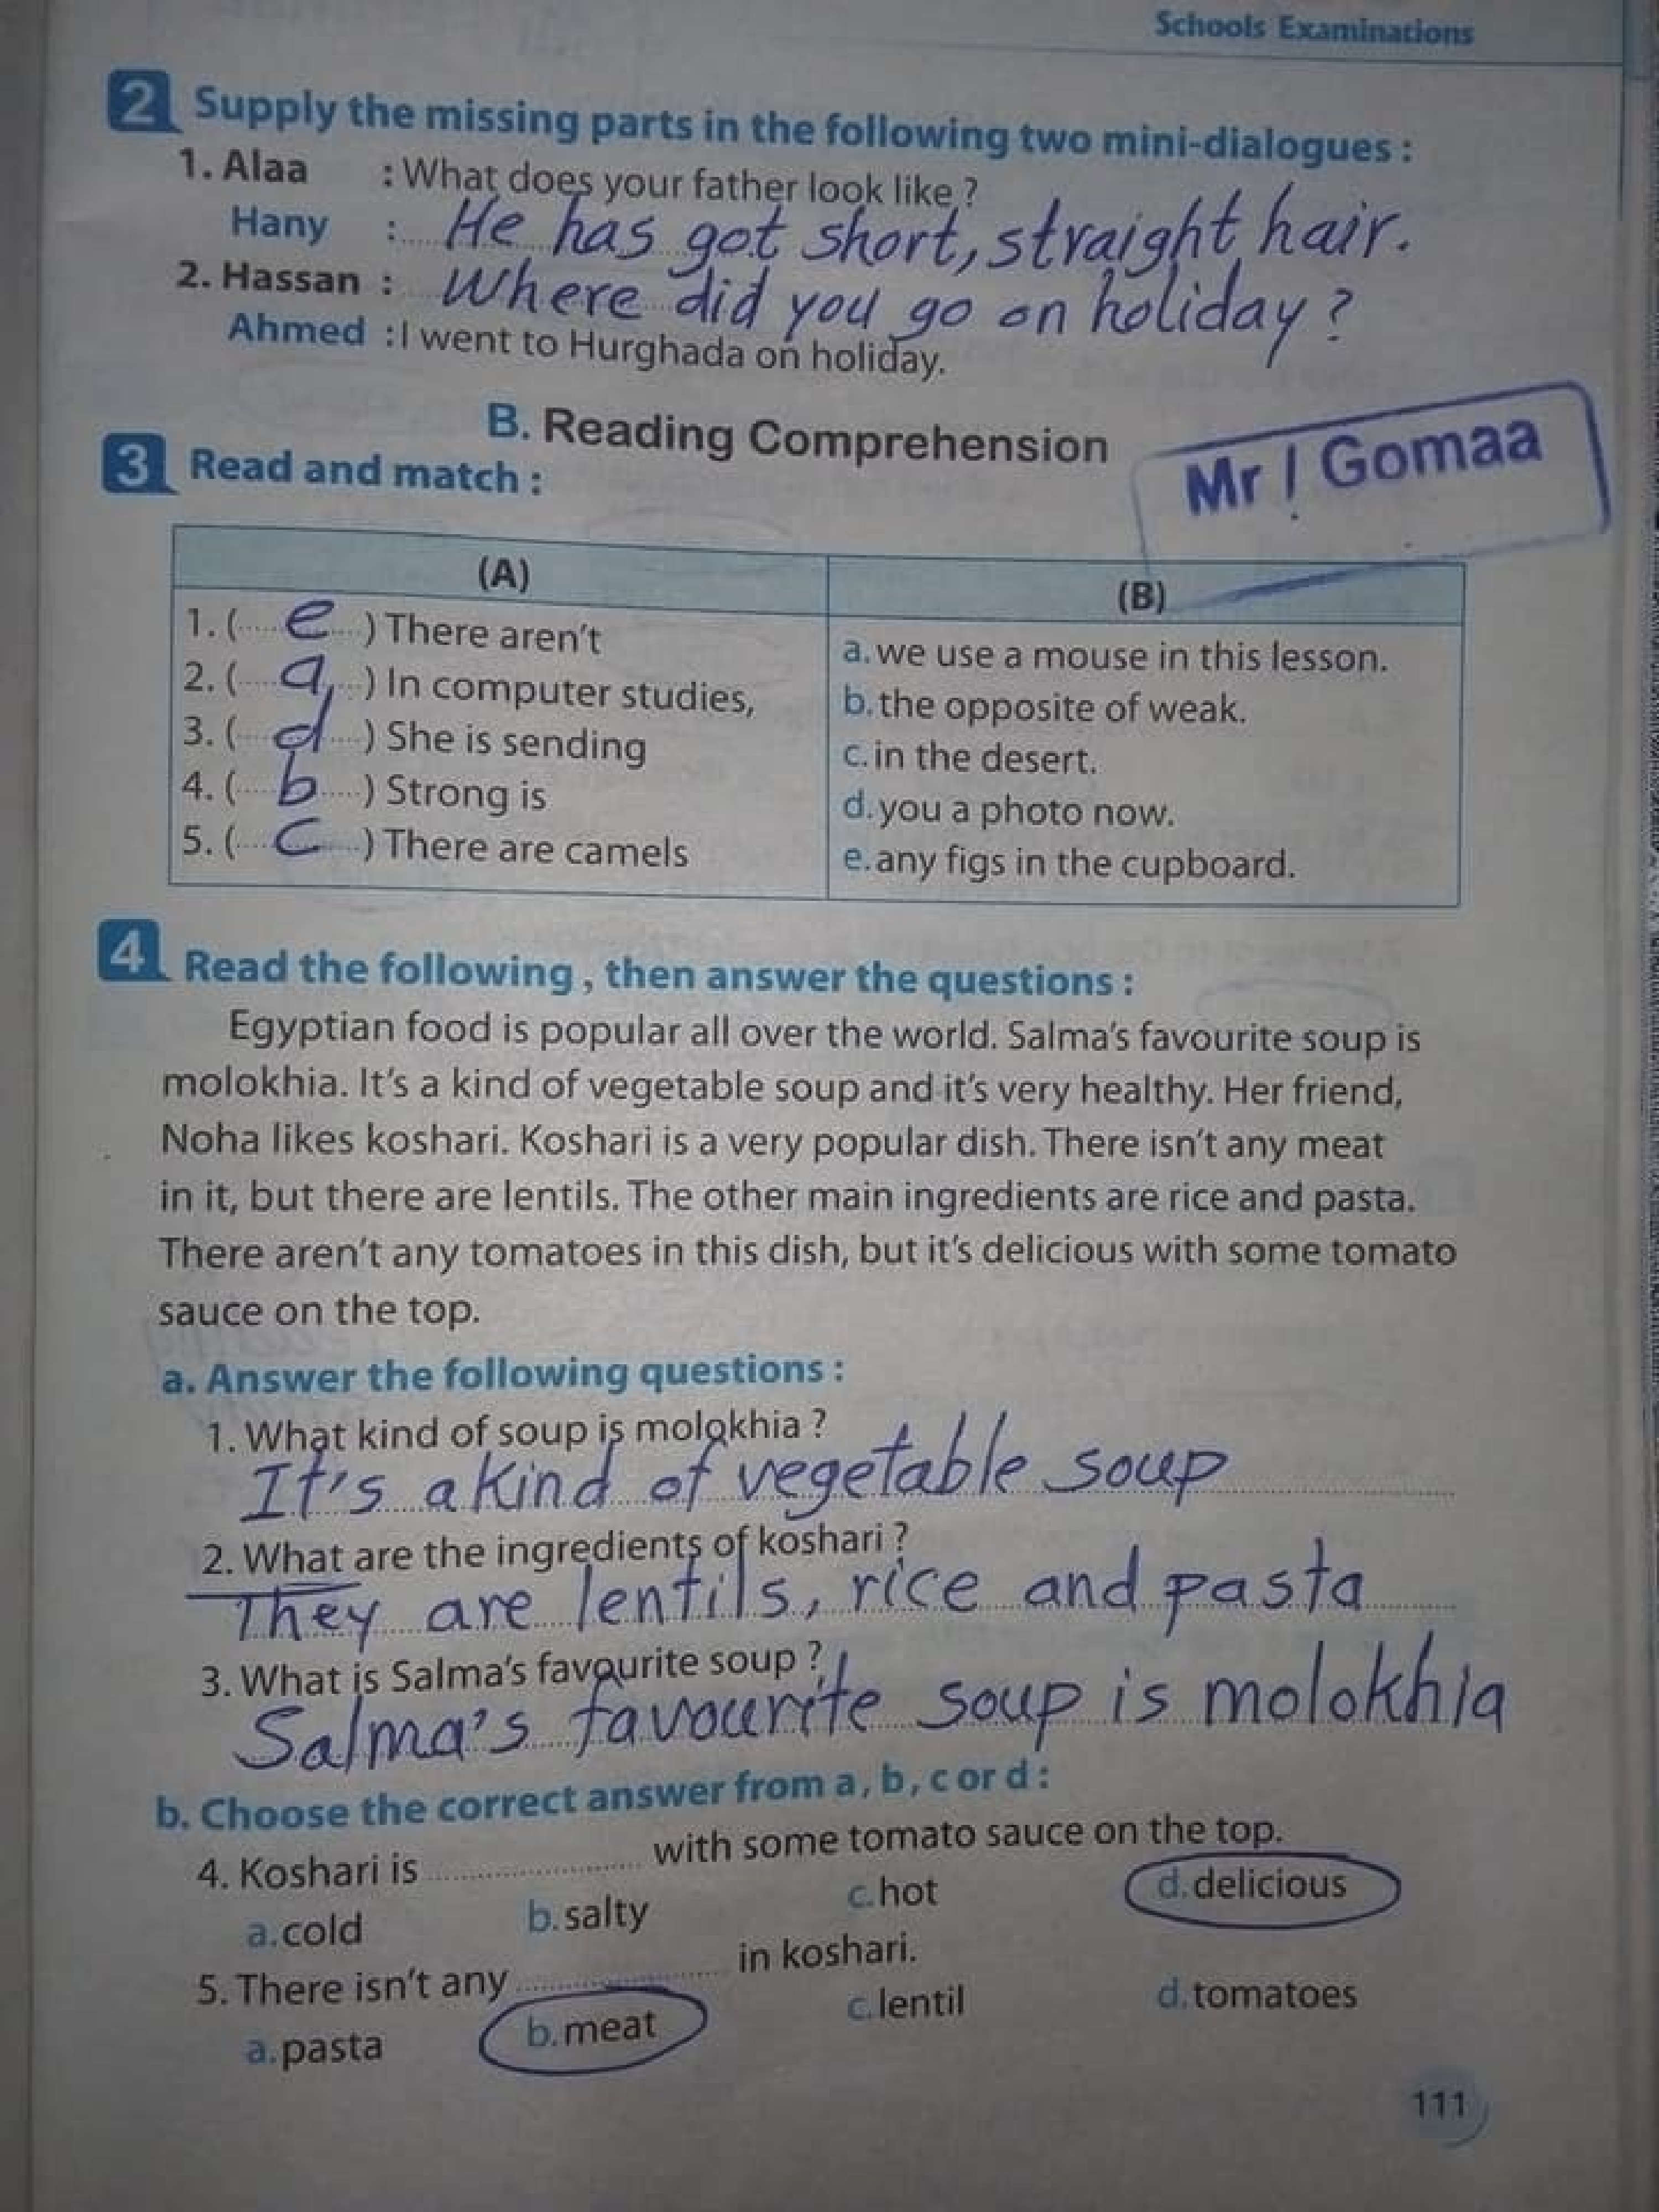 Schools Examinations
2 Supply the missing parts in the following two mini-dialogues :
1. Alaa : What does your father look like ?
Hany : He has got short, straight hair.
2. Hassan : Where did you go on holiday ?
Ahmed : I went to Hurghada on holiday.
B. Reading Comprehension
Mr / Gomaa
3 Read and match :
(A) (B)
1. (.... e ....) There aren't
2. (.... a ....) In computer studies,
3. (.... d ....) She is sending
4. (.... b ....) Strong is
5. (.... c ....) There are camels
a. we use a mouse in this lesson.
b. the opposite of weak.
c. in the desert.
d. you a photo now.
e. any figs in the cupboard.
4 Read the following , then answer the questions :
Egyptian food is popular all over the world. Salma's favourite soup is
molokhia. It's a kind of vegetable soup and it's very healthy. Her friend,
Noha likes koshari. Koshari is a very popular dish. There isn't any meat
in it, but there are lentils. The other main ingredients are rice and pasta.
There aren't any tomatoes in this dish, but it's delicious with some tomato
sauce on the top.
a. Answer the following questions :
1. What kind of soup is molokhia ?
It's a kind of vegetable soup
2. What are the ingredients of koshari ?
They are lentils, rice and pasta
3. What is Salma's favourite soup ?
Salma's favourite soup is molokhia
b. Choose the correct answer from a , b , c or d :
4. Koshari is .................... with some tomato sauce on the top.
a. cold b. salty c. hot d. delicious
5. There isn't any .................... in koshari.
a. pasta b. meat c. lentil d. tomatoes
111